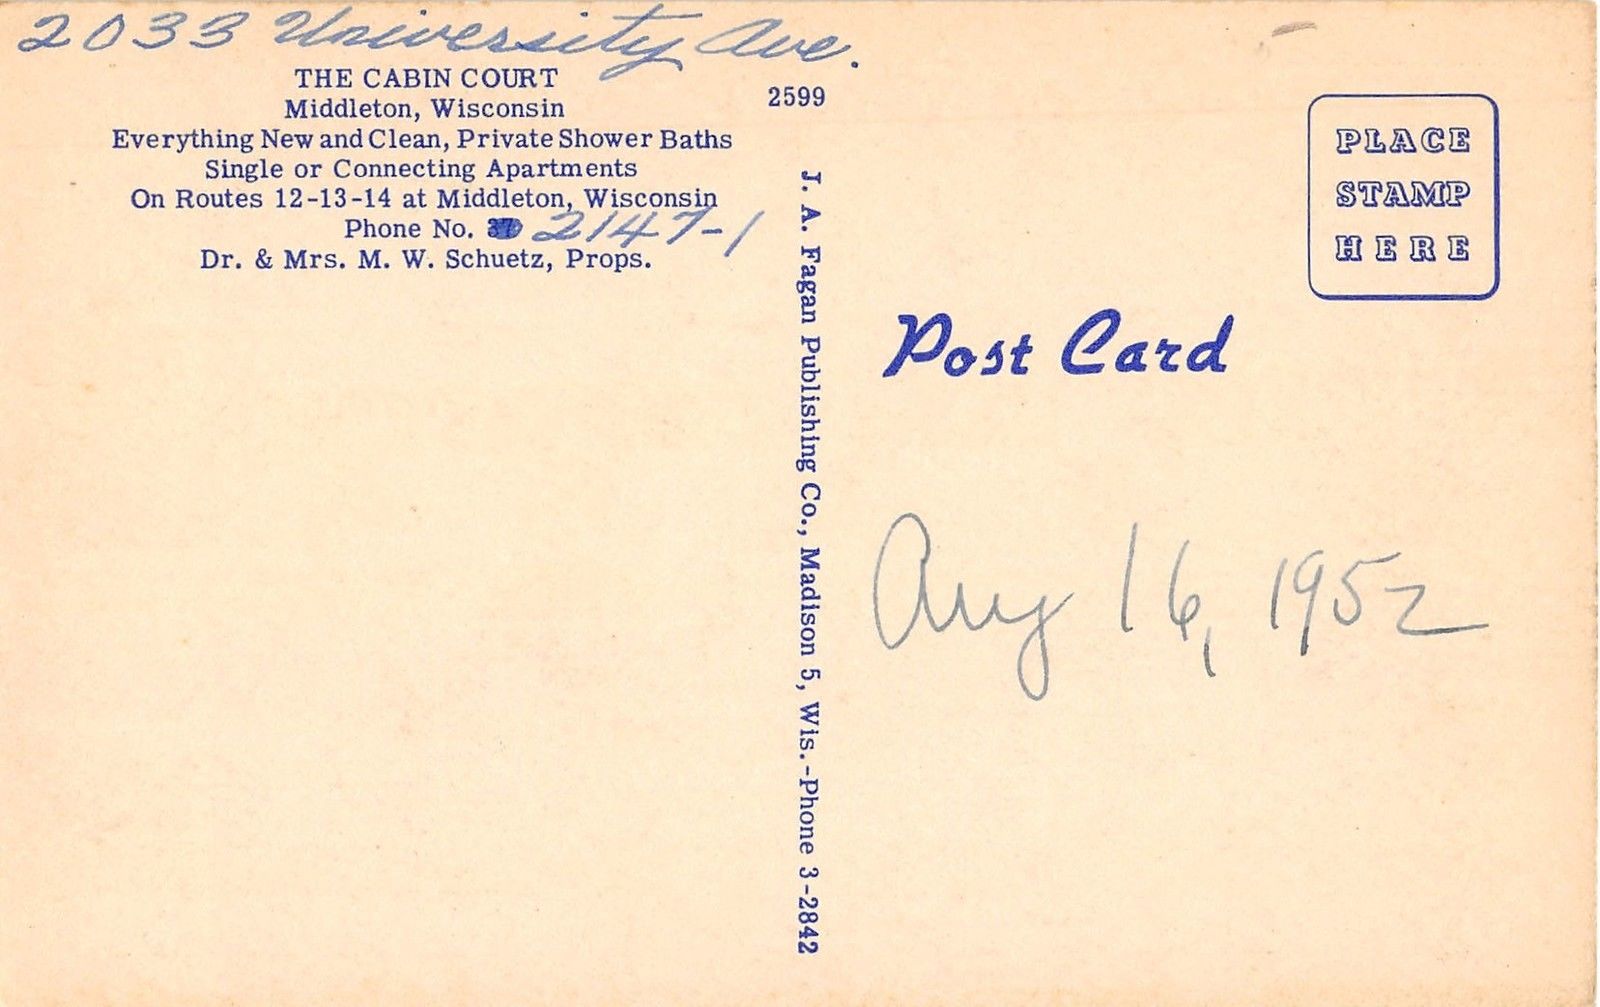 2033 University Ave.
THE CABIN COURT
Middleton, Wisconsin
Everything New and Clean, Private Shower Baths
Single or Connecting Apartments
On Routes 12-13-14 at Middleton, Wisconsin
Phone No. 2147-1
Dr. & Mrs. M. W. Schuetz, Props.
2599
J. A. Fagan Publishing Co., Madison 5, Wis.-Phone 3-2842
PLACE
STAMP
HERE
Post Card
Aug 16, 1952